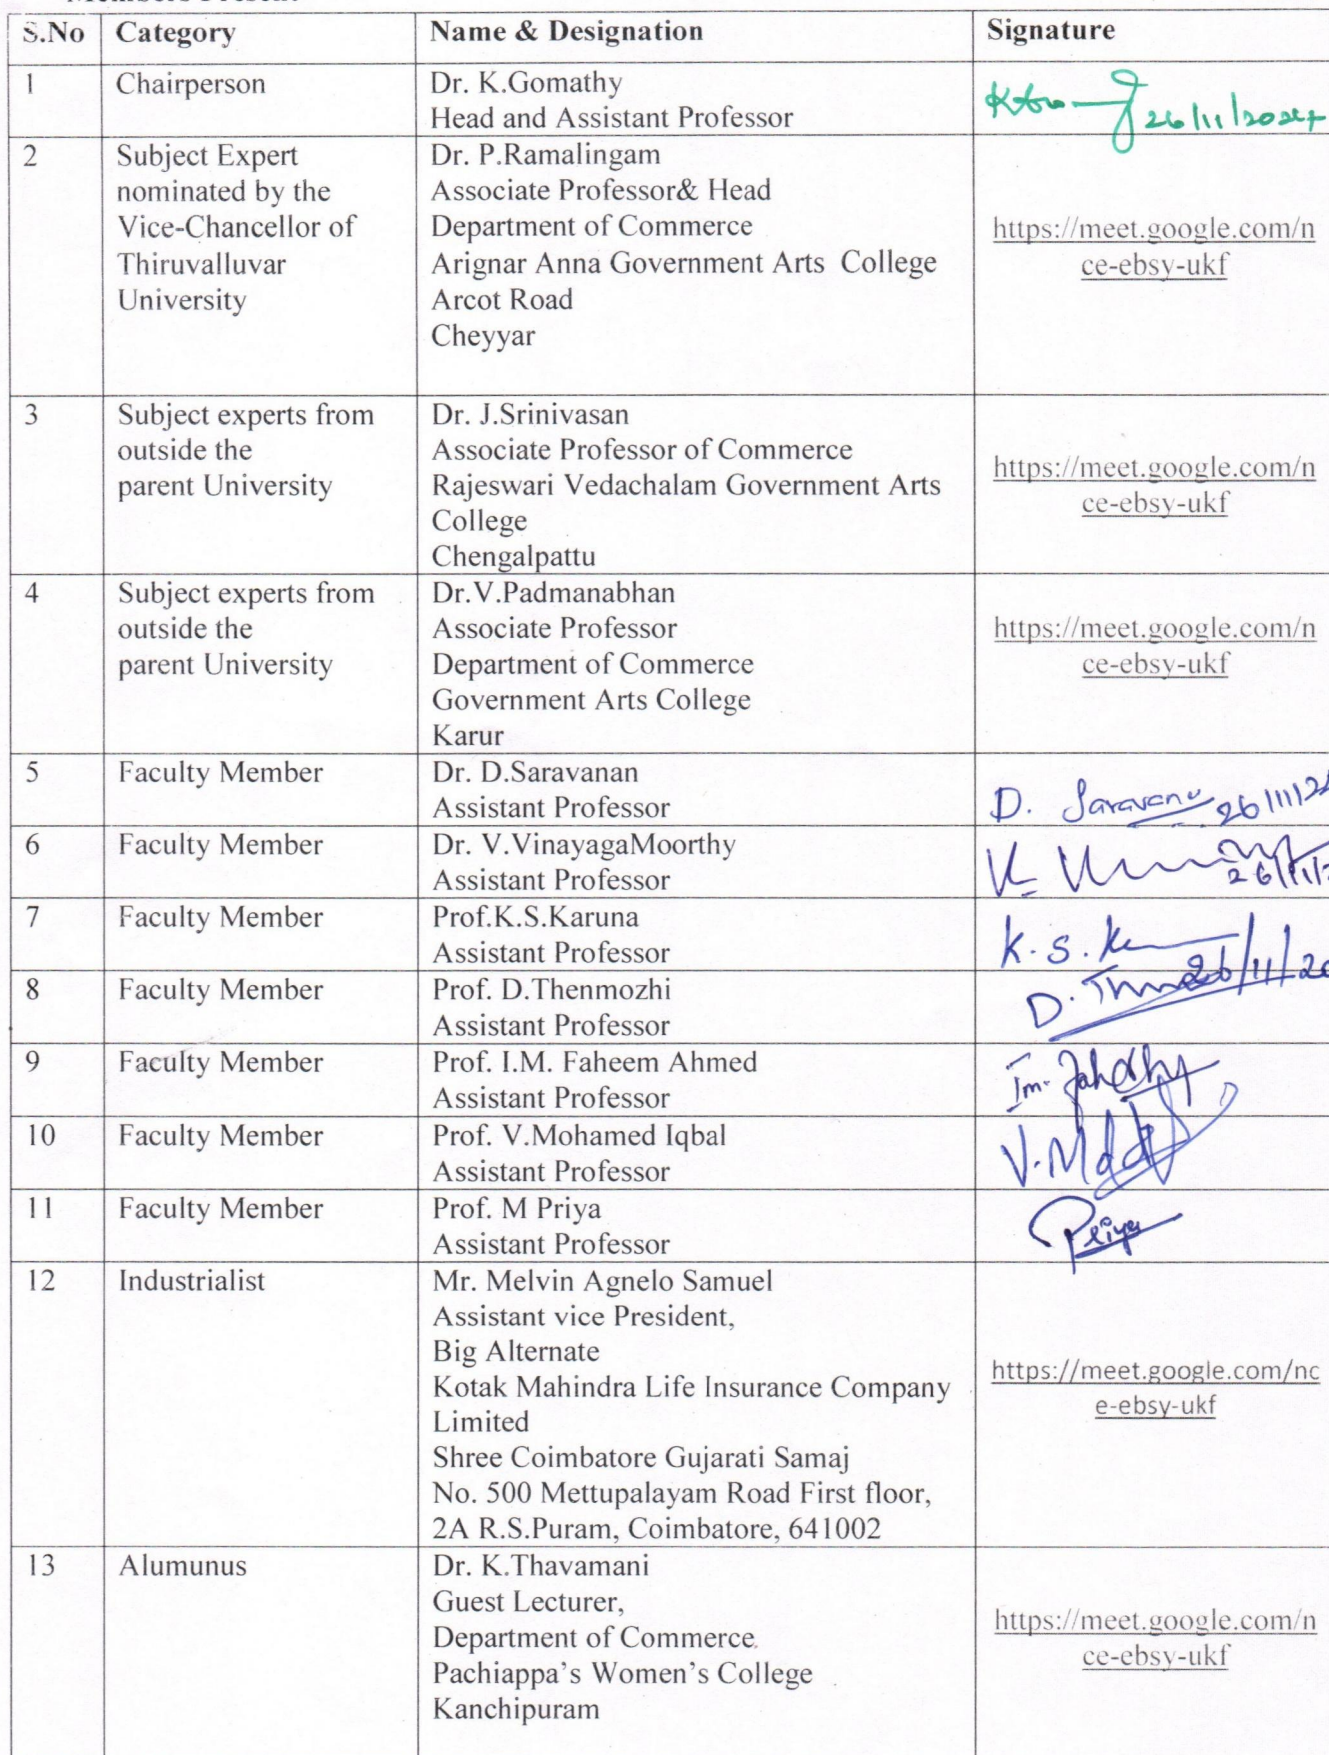 Members Present
S.No Category Name & Designation Signature
1 Chairperson Dr. K.Gomathy
Head and Assistant Professor
26/11/2024
2 Subject Expert
nominated by the
Vice-Chancellor of
Thiruvalluvar
University
Dr. P.Ramalingam
Associate Professor& Head
Department of Commerce
Arignar Anna Government Arts College
Arcot Road
Cheyyar
https://meet.google.com/n
ce-ebsy-ukf
3 Subject experts from
outside the
parent University
Dr. J.Srinivasan
Associate Professor of Commerce
Rajeswari Vedachalam Government Arts
College
Chengalpattu
https://meet.google.com/n
ce-ebsy-ukf
4 Subject experts from
outside the
parent University
Dr.V.Padmanabhan
Associate Professor
Department of Commerce
Government Arts College
Karur
https://meet.google.com/n
ce-ebsy-ukf
5 Faculty Member Dr. D.Saravanan
Assistant Professor
D. 26/11/2
6 Faculty Member Dr. V.VinayagaMoorthy
Assistant Professor
26/11/
7 Faculty Member Prof.K.S.Karuna
Assistant Professor
K.S.
8 Faculty Member Prof. D.Thenmozhi
Assistant Professor
D. 26/11/20
9 Faculty Member Prof. I.M. Faheem Ahmed
Assistant Professor
10 Faculty Member Prof. V.Mohamed Iqbal
Assistant Professor
V.Md
11 Faculty Member Prof. M Priya
Assistant Professor
Priya
12 Industrialist Mr. Melvin Agnelo Samuel
Assistant vice President,
Big Alternate
Kotak Mahindra Life Insurance Company
Limited
Shree Coimbatore Gujarati Samaj
No. 500 Mettupalayam Road First floor,
2A R.S.Puram, Coimbatore, 641002
https://meet.google.com/nc
e-ebsy-ukf
13 Alumunus Dr. K.Thavamani
Guest Lecturer,
Department of Commerce
Pachiappa's Women's College
Kanchipuram
https://meet.google.com/n
ce-ebsy-ukf